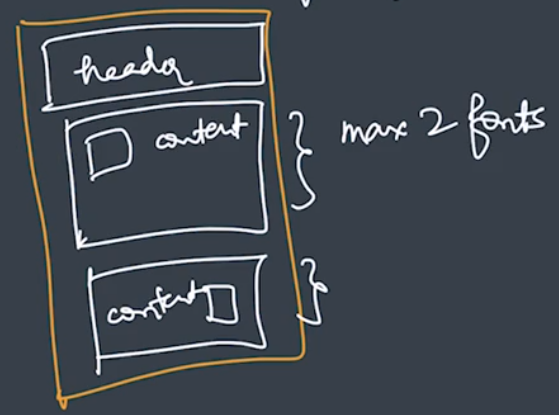 header
content
max 2 fonts
content